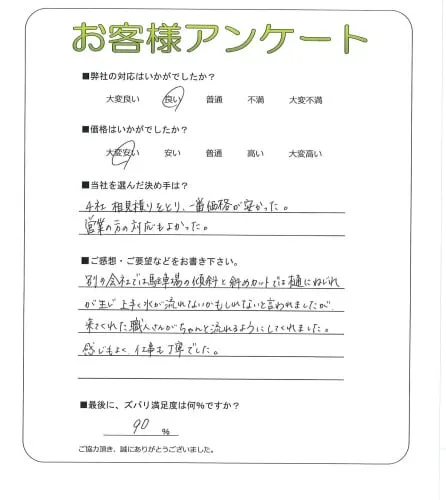 お客様アンケート
■弊社の対応はいかがでしたか?
大変良い 良い 普通 不満 大変不満
■価格はいかがでしたか?
大変安い 安い 普通 高い 大変高い
■当社を選んだ決め手は?
4社 相見積りをとり、一番価格が安かった。
営業の方の対応もよかった。
■ご感想・ご要望などをお書き下さい。
別の会社では駐車場の傾斜と斜めカットでは樋にねじれ
が生じ 上手く水が流れないかもしれないと言われましたが、
来てくれた職人さんがちゃんと流れるようにしてくれました。
感じもよく、仕事も丁寧でした。
■最後に、ズバリ満足度は何%ですか?
90 %
ご協力頂き、誠にありがとうございました。